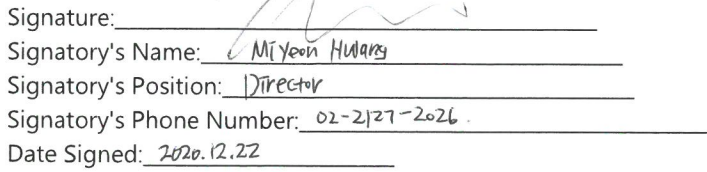 Signature:
Signatory's Name: Mi Yeon Hwang
Signatory's Position: Director
Signatory's Phone Number: 02-2127-2026.
Date Signed: 2020.12.22